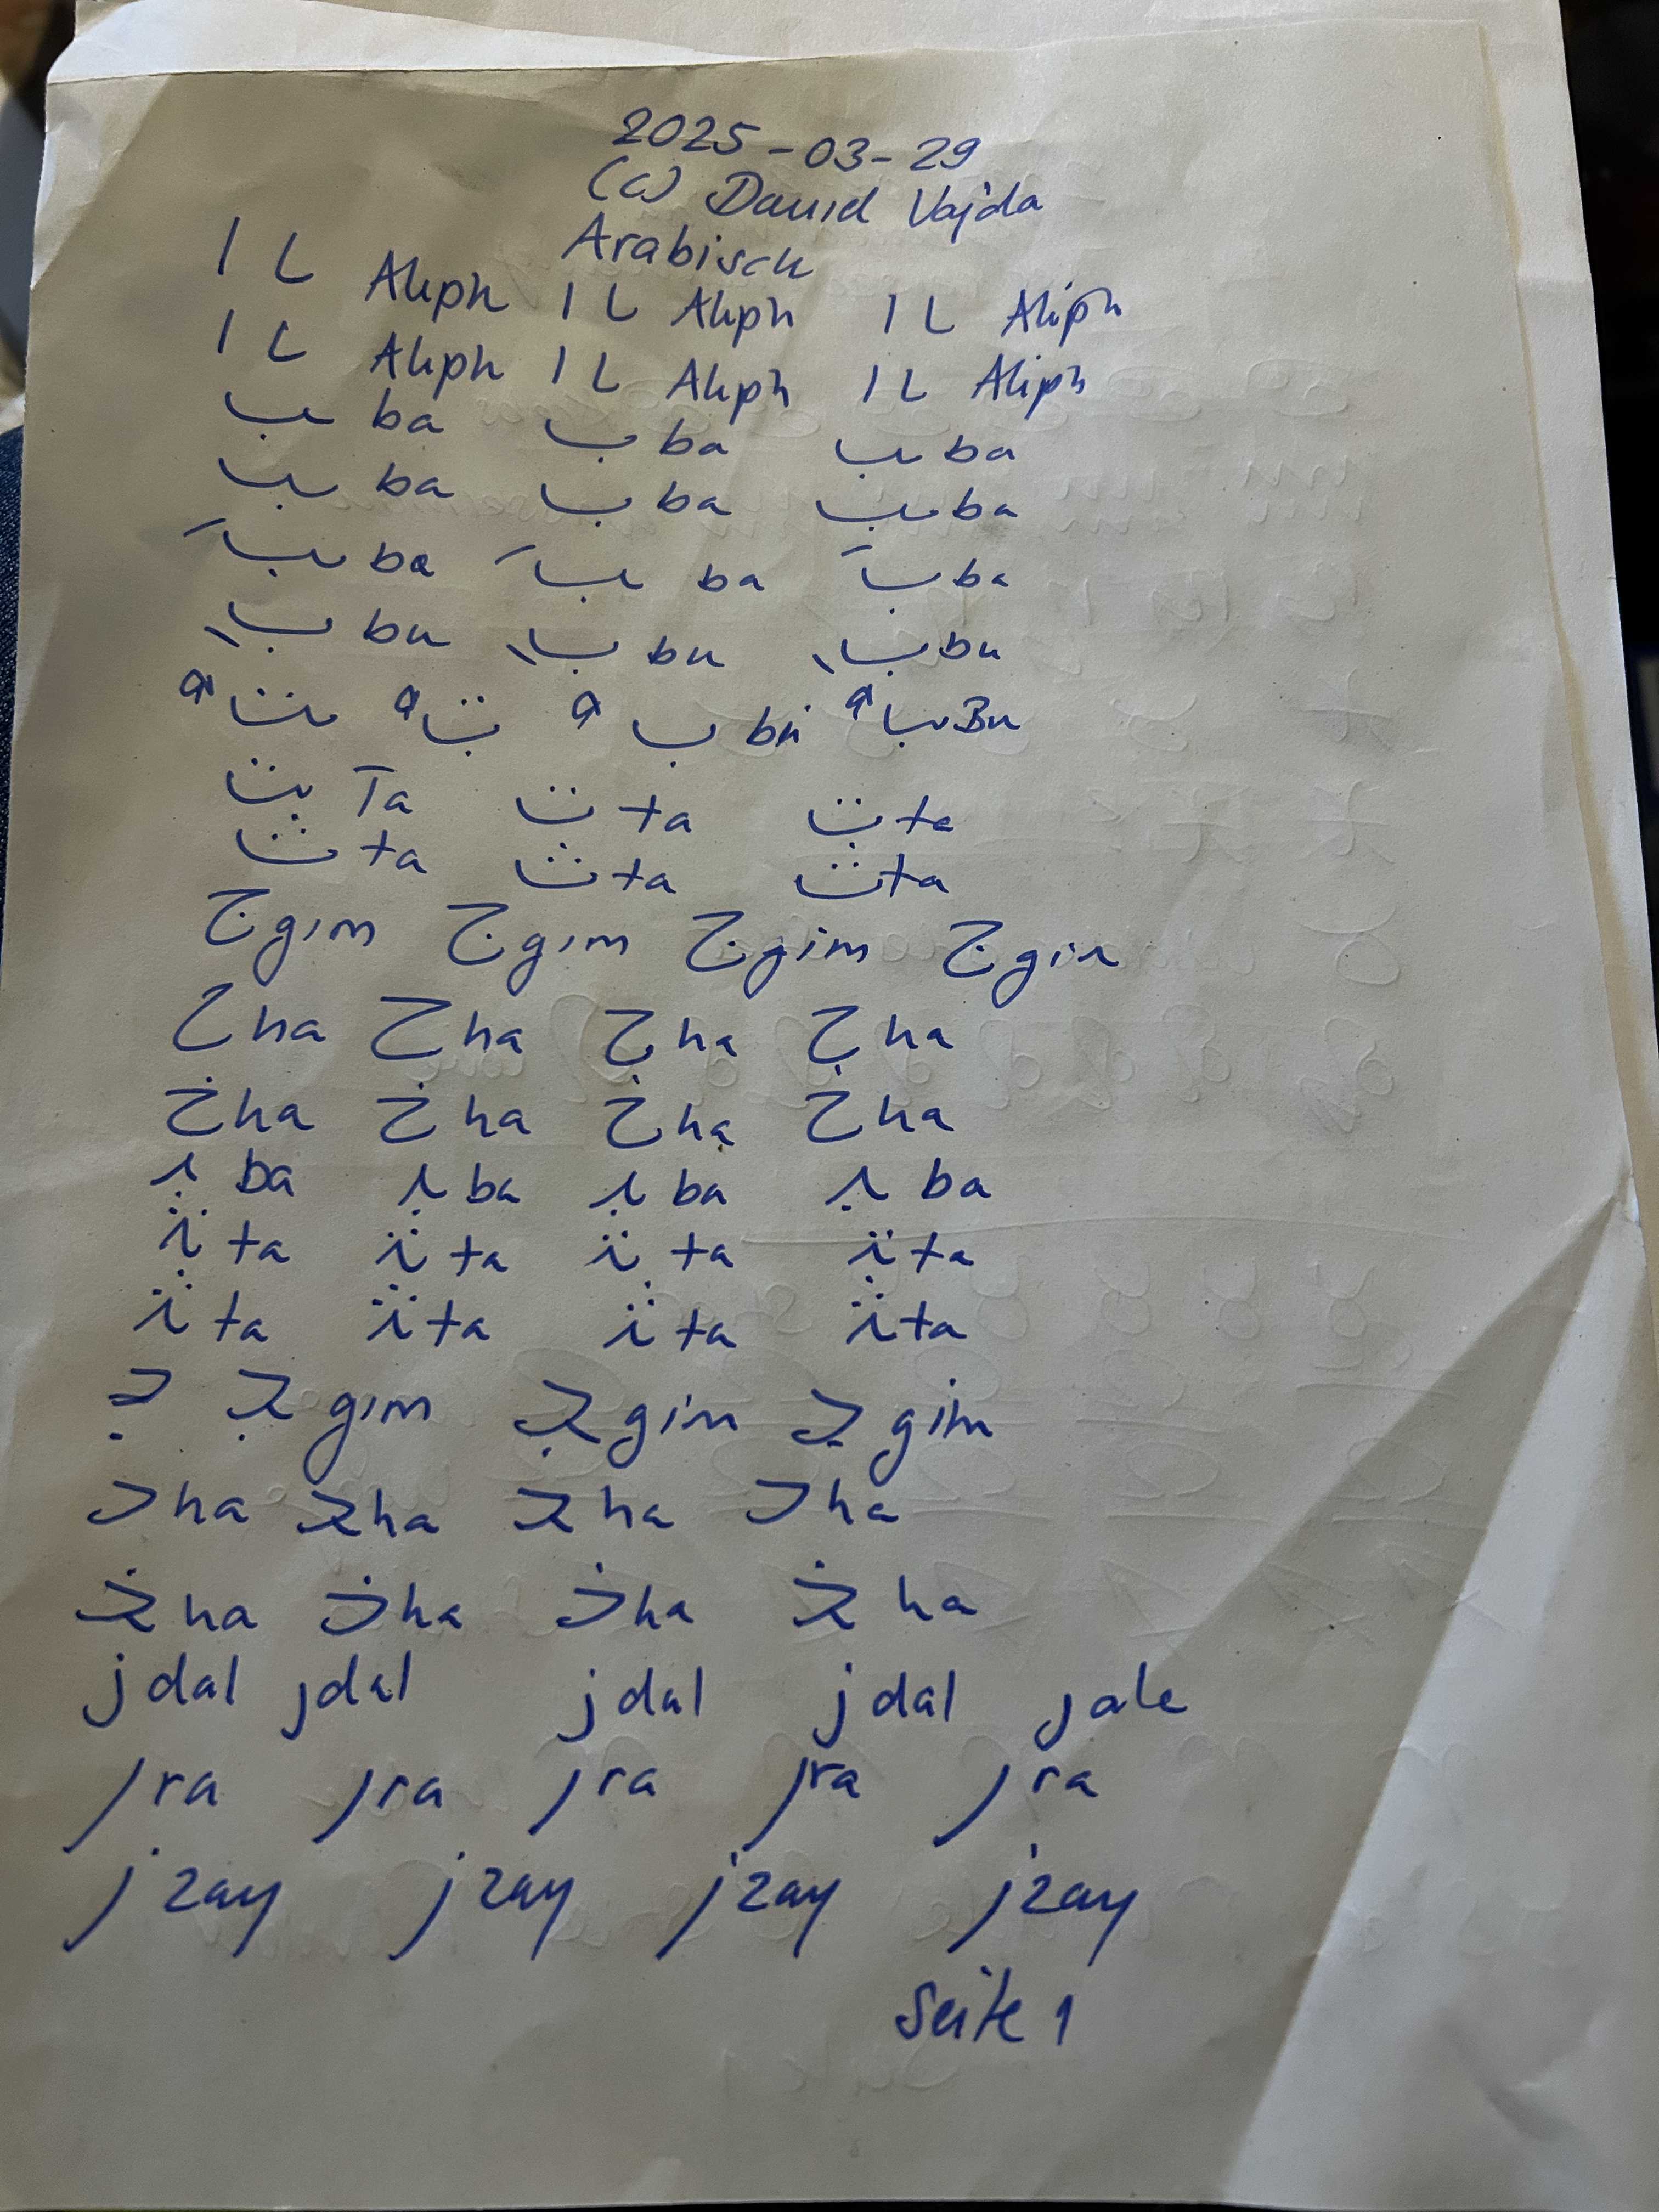 2025-03-29
(c) David Vajda
Arabisch
ا ـا Aliph ا ـا Aliph ا ـا Aliph
ا ـا Aliph ا ـا Aliph ا ـا Aliph
ب ba ب ba ب ba
ب ba ب ba ب ba
بَ ba بَ ba بَ ba
بِ bu بِ bu بِ bu
تُ تُ بُ bu بُ Bu
ت Ta ت ta ت ta
ث ta ث ta ث ta
ج gim ج gim ج gim ج gim
ح ha ح ha ح ha ح ha
خ ha خ ha خ ha خ ha
بـ ba بـ ba بـ ba بـ ba
تـ ta تـ ta تـ ta تـ ta
ثـ ta ثـ ta ثـ ta ثـ ta
جـ جـ gim جـ gim جـ gim
حـ ha حـ ha حـ ha حـ ha
خـ ha خـ ha خـ ha خـ ha
د dal د dal د dal د dal
ر ra ر ra ر ra ر ra ر ra
ز zay ز zay ز zay ز zay
Seite 1